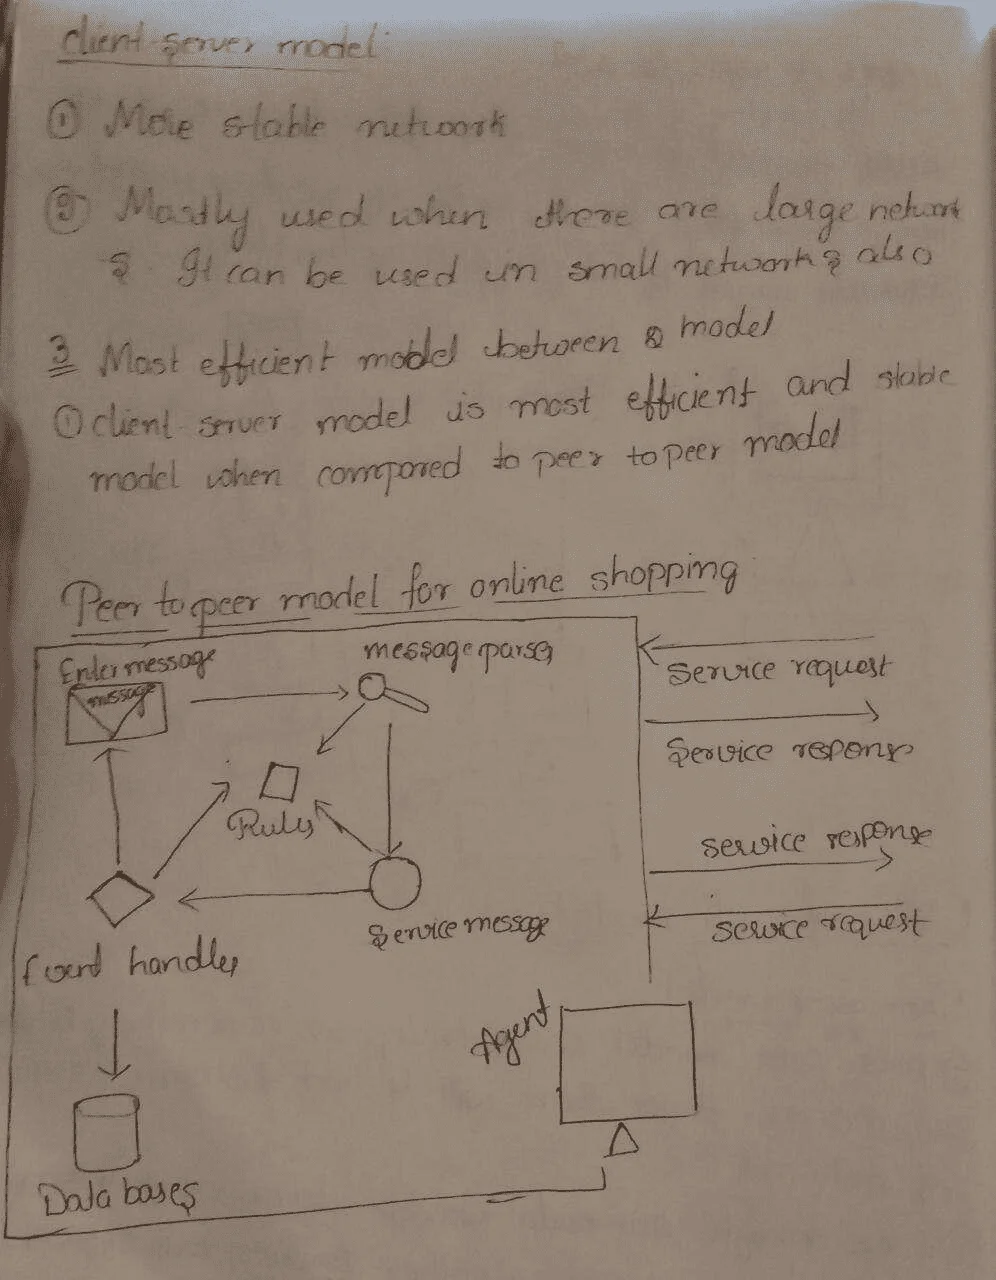 client-server model
① More stable network
② Mostly used when there are large network
& It can be used in small networks also
3 Most efficient model between 2 model
① client-server model is most efficient and stable
model when compared to peer to peer model
Peer to peer model for online shopping
Enter message
message
message parser
Service request
Service respons
Rules
service response
service request
Service message
Event handler
Agent
Data bases